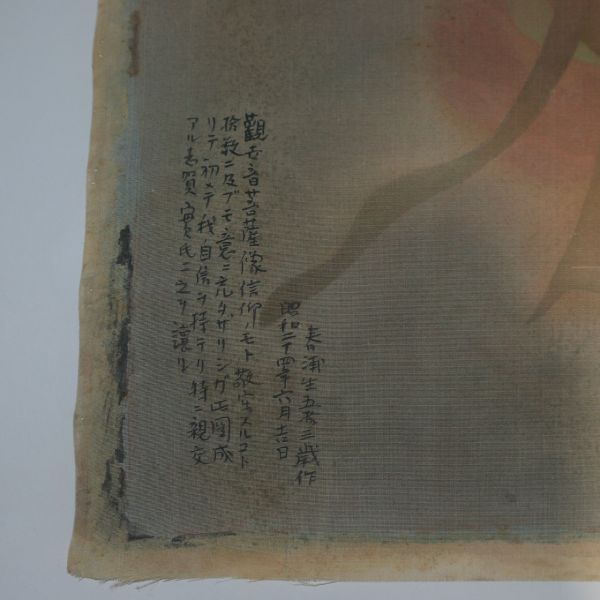 春浦生五拾三歳作
昭和二十四年六月吉日
觀世音菩薩像信仰ノモト敬寫スルコト
拾数ニ及ブモ意ニ充タザリシガ此図成
リテ初メテ我自信ヲ持テリ特ニ親交
アル志賀實氏ニ之ヲ譲ル